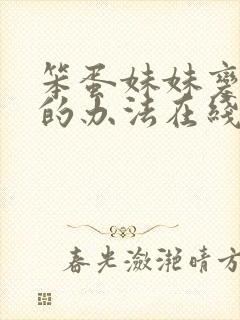 笨蛋妹妹
的办法在线
春光潋滟晴方